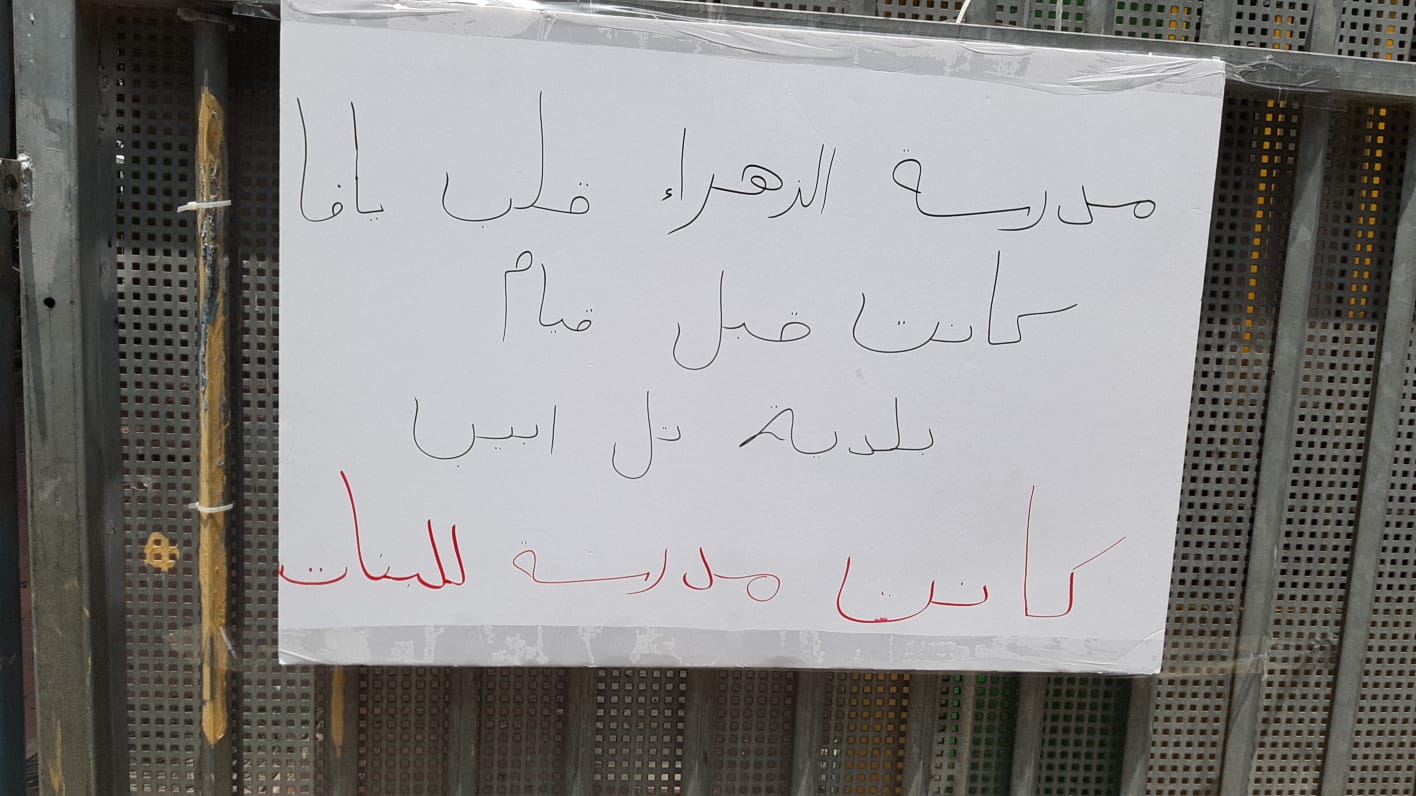 مدرسة الزهراء قلب يافا
كانت قبل قيام
بلدية تل ابيب
كانت مدرسة للبنات